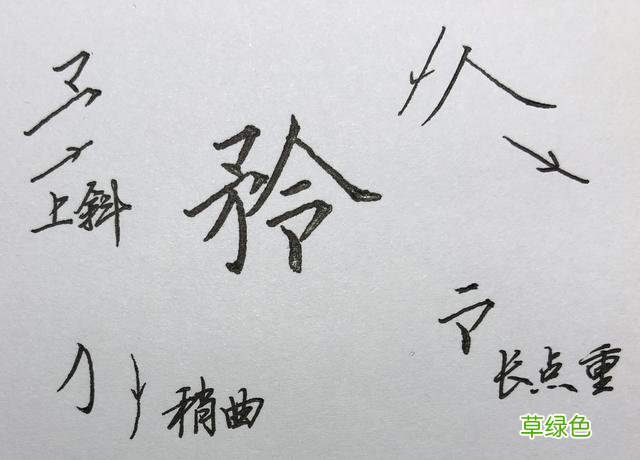 矜
上斜
稍曲
长点重
草绿色